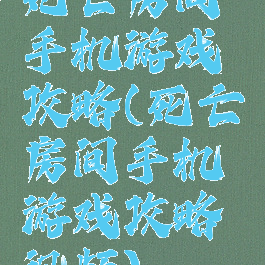 死亡房间
手机游戏
攻略(死亡
房间手机
游戏攻略
视频)